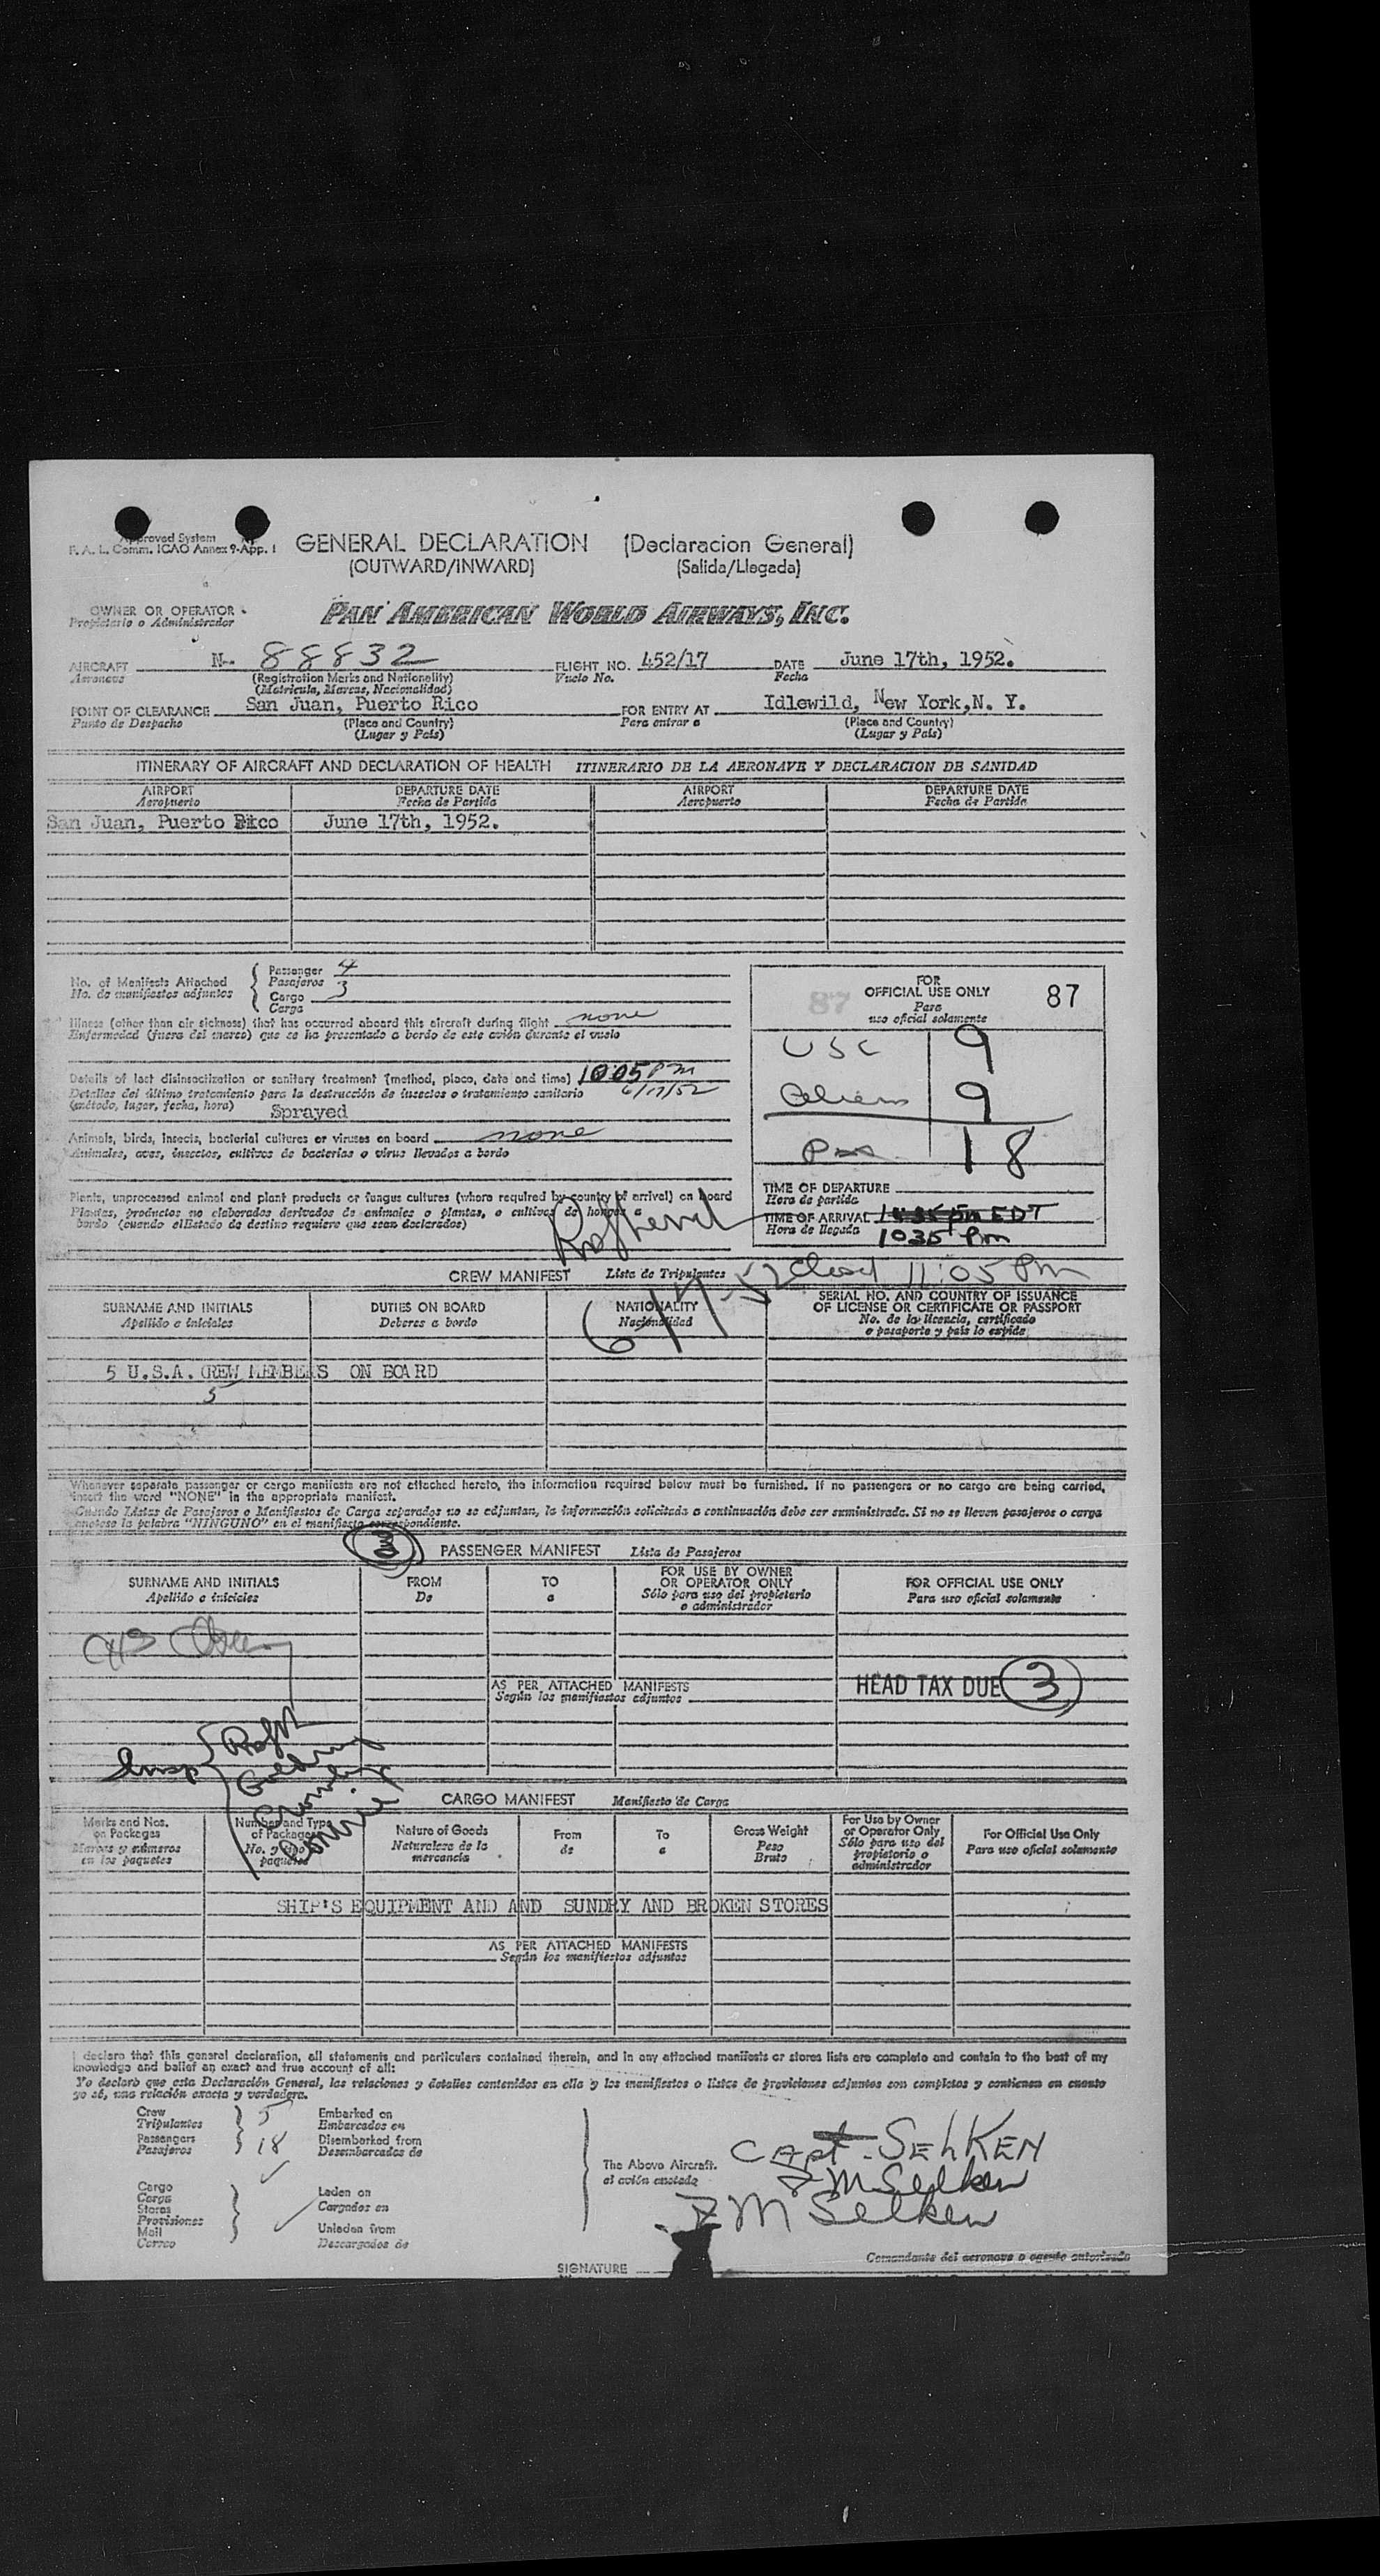 Approved System
F. A. L. Comm. ICAO Annex 9-App. 1
GENERAL DECLARATION (Declaracion General)
(OUTWARD/INWARD) (Salida/Llegada)
OWNER OR OPERATOR
Propietario o Administrador
PAN AMERICAN WORLD AIRWAYS, INC.
AIRCRAFT N-- 88832 FLIGHT NO. 452/17 DATE June 17th, 1952.
Aeronave (Registration Marks and Nationality) Vuelo No. Fecha
(Matricula, Marcas, Nacionalidad)
POINT OF CLEARANCE San Juan, Puerto Rico FOR ENTRY AT Idlewild, New York, N. Y.
Punto de Despacho (Place and Country) Para entrar a (Place and Country)
(Lugar y País) (Lugar y País)
ITINERARY OF AIRCRAFT AND DECLARATION OF HEALTH ITINERARIO DE LA AERONAVE Y DECLARACION DE SANIDAD
AIRPORT DEPARTURE DATE AIRPORT DEPARTURE DATE
Aeropuerto Fecha de Partida Aeropuerto Fecha de Partida
San Juan, Puerto Rico June 17th, 1952.
No. of Manifests Attached Passenger 4
No. de manifiestos adjuntos Pasajeros
Cargo 3
Carga
Illness (other than air sickness) that has occurred aboard this aircraft during flight none
Enfermedad (fuera del mareo) que se ha presentado a bordo de este avión durante el vuelo
Details of last disinsectization or sanitary treatment (method, place, date and time) 1005 PM
Detalles del último tratamiento para la destrucción de insectos o tratamiento sanitario 6/17/52
(método, lugar, fecha, hora) Sprayed
Animals, birds, insects, bacterial cultures or viruses on board none
Animales, aves, insectos, cultivos de bacterias o virus llevados a bordo
Plants, unprocessed animal and plant products or fungus cultures (where required by country of arrival) on board
Plantas, productos no elaborados derivados de animales o plantas, o cultivos de hongos a
bordo (cuando el Estado de destino requiere que sean declarados)
87 FOR
OFFICIAL USE ONLY 87
Para
uso oficial solamente
USC 9
Aliens 9
Pax 18
TIME OF DEPARTURE
Hora de partida
TIME OF ARRIVAL 1035 pm EDT
Hora de llegada 1035 Pm
6-17-52 Closed 11:05 PM
CREW MANIFEST Lista de Tripulantes
SURNAME AND INITIALS DUTIES ON BOARD NATIONALITY SERIAL NO. AND COUNTRY OF ISSUANCE
Apellido e iniciales Deberes a bordo Nacionalidad OF LICENSE OR CERTIFICATE OR PASSPORT
No. de la licencia, certificado
o pasaporte y país lo expide
5 U.S.A. CREW MEMBERS ON BOARD
5
Whenever separate passenger or cargo manifests are not attached hereto, the information required below must be furnished. If no passengers or no cargo are being carried,
insert the word "NONE" in the appropriate manifest.
Cuando Listas de Pasajeros o Manifiestos de Carga separados no se adjuntan, la información solicitada a continuación debe ser suministrada. Si no se lleven pasajeros o carga
anótese la palabra "NINGUNO" en el manifiesto correspondiente.
PASSENGER MANIFEST Lista de Pasajeros
SURNAME AND INITIALS FROM TO FOR USE BY OWNER FOR OFFICIAL USE ONLY
Apellido e iniciales De a OR OPERATOR ONLY Para uso oficial solamente
Sólo para uso del propietario
o administrador
AS PER ATTACHED MANIFESTS
Según los manifiestos adjuntos
HEAD TAX DUE 3
Insp
CARGO MANIFEST Manifiesto de Carga
Marks and Nos. Number and Type Nature of Goods From To Gross Weight For Use by Owner For Official Use Only
on Packages of Packages Naturaleza de la de a Peso or Operator Only Para uso oficial solamente
Marcas y números No. y tipo mercancía Bruto Sólo para uso del
en los paquetes paquetes propietario o
administrador
SHIP'S EQUIPMENT AND AND SUNDRY AND BROKEN STORES
AS PER ATTACHED MANIFESTS
Según los manifiestos adjuntos
I declare that this general declaration, all statements and particulars contained therein, and in any attached manifests or stores lists are complete and contain to the best of my
knowledge and belief an exact and true account of all:
Yo declaro que esta Declaración General, las relaciones y detalles contenidos en ella y los manifiestos o listas de provisiones adjuntos son completos y contienen en cuanto
yo sé, una relación exacta y verdadera.
Crew 5 Embarked on
Tripulantes Embarcados en
Passengers 18 Disembarked from
Pasajeros Desembarcados de
Cargo
Carga Laden on
Stores Cargados en
Provisiones
Mail Unladen from
Correo Descargados de
The Above Aircraft.
el avión anotado
CAPT. SELKEN
F M Selken
F M Selken
SIGNATURE
Comandante del aeronave o agente autorizado